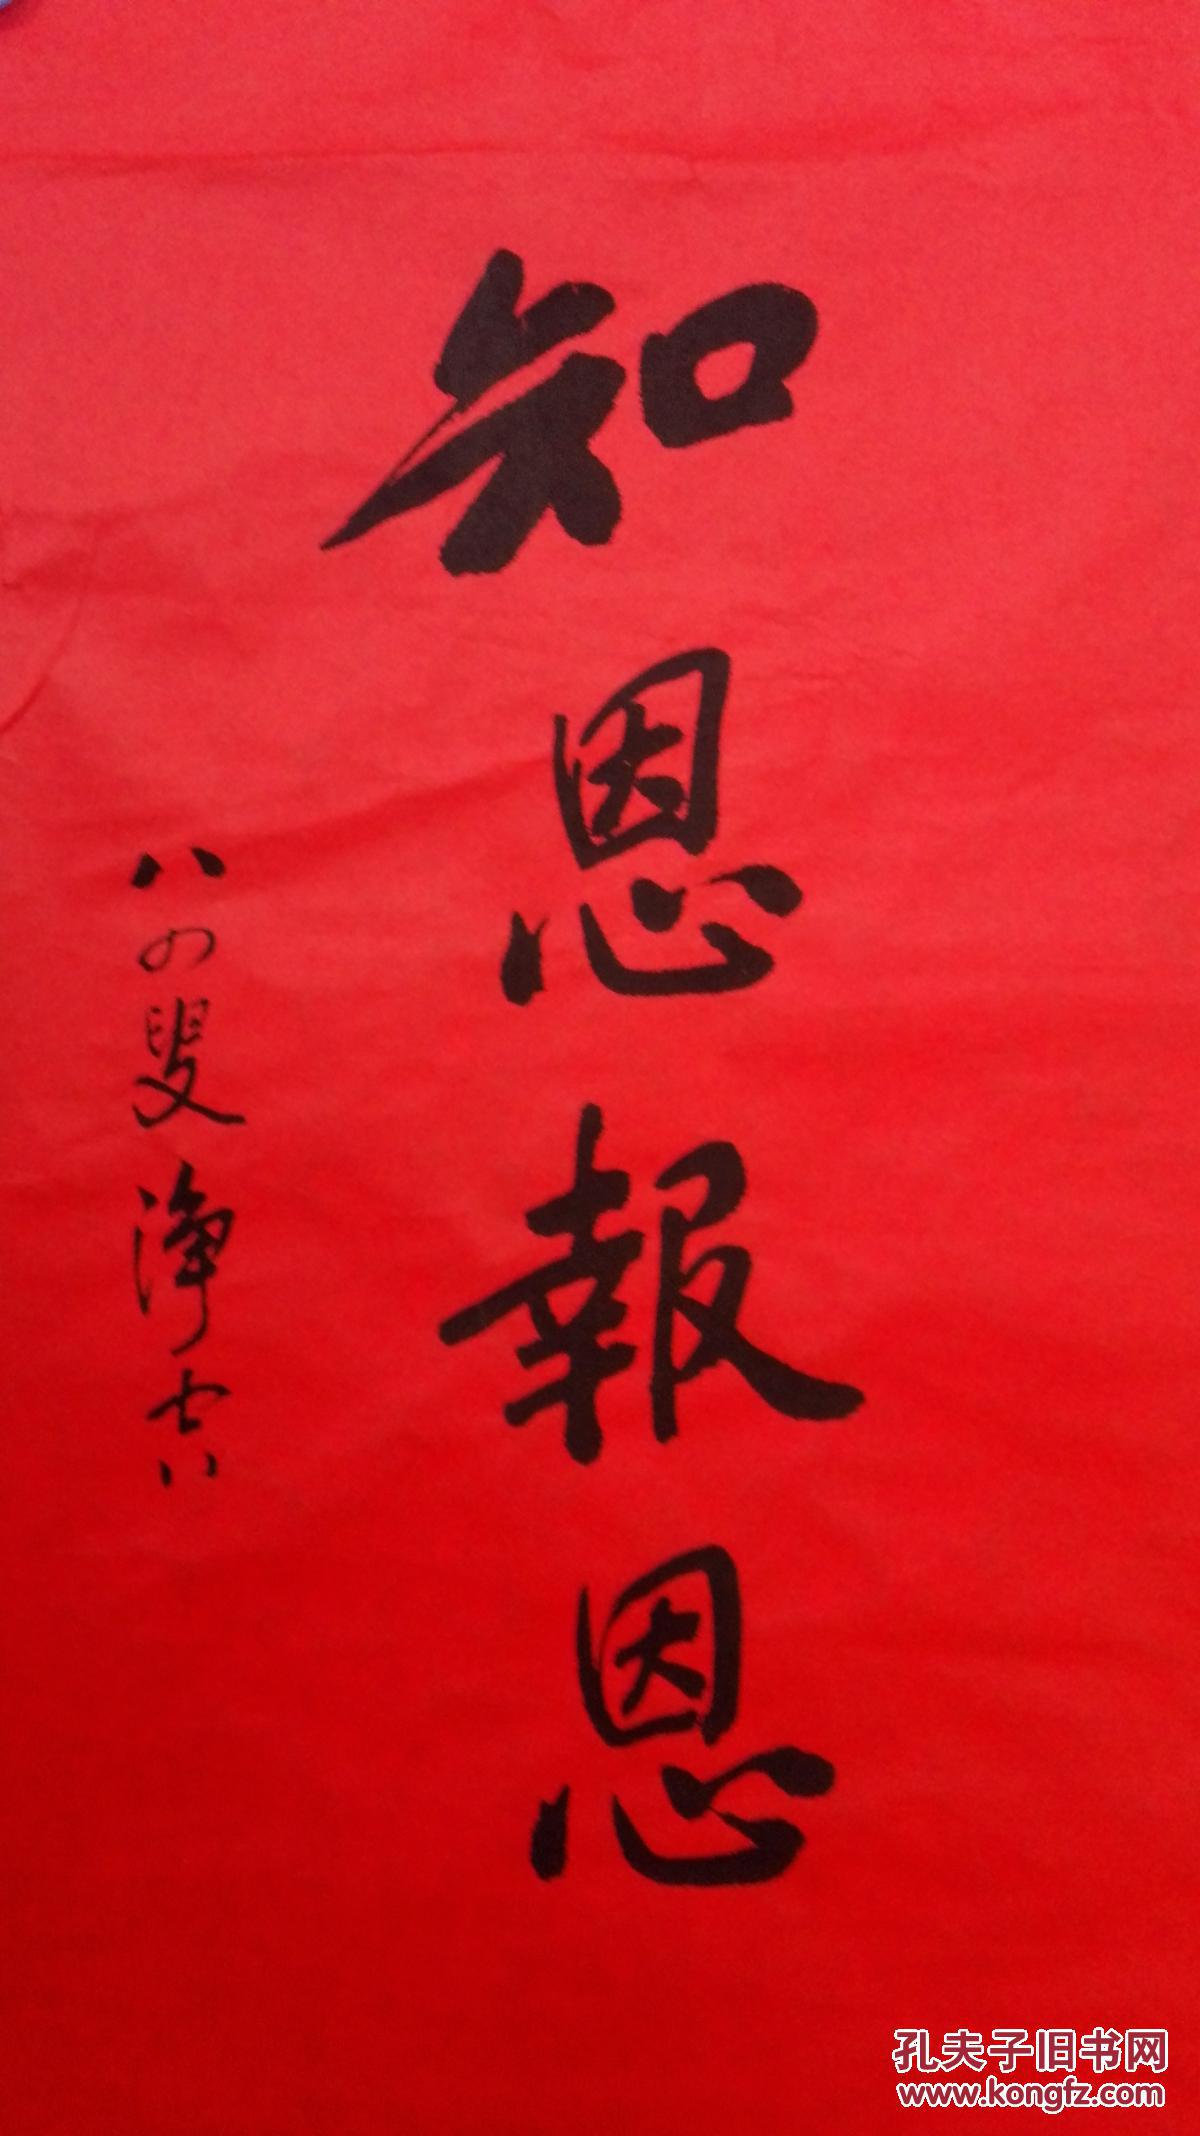 知恩報恩
八四叟淨空
孔夫子旧书网
www.kongfz.com